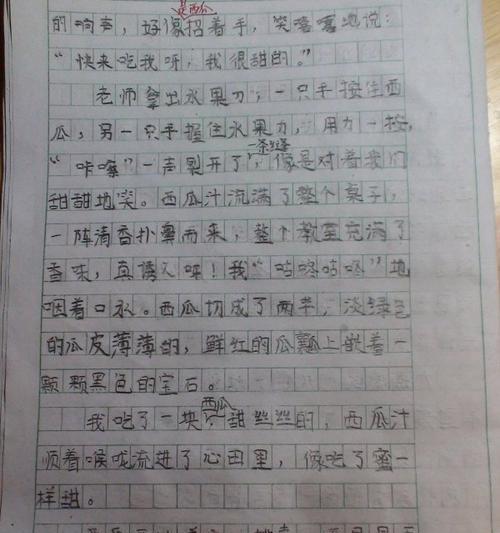 是西瓜
的响声，好像招着手，笑嘻嘻地说：
“快来吃我呀，我很甜的。”
老师拿出水果刀，一只手按住西
瓜，另一只手握住水果刀，用力一按，
一条丝缝
“咔嚓”一声裂开了，像是对着我们
甜甜地笑。西瓜汁流满了整个桌子，
一阵清香扑鼻而来，整个教室充满了
香味，真诱人呀！我“咕咚咕咚”地
咽着口水。西瓜切成了两半，淡绿色
的瓜皮薄薄的，鲜红的瓜瓤上嵌着一
颗颗黑色的宝石。
西瓜
我吃了一块，甜丝丝的，西瓜汁
顺着喉咙流进了心田里，像吃了蜜一
样甜。